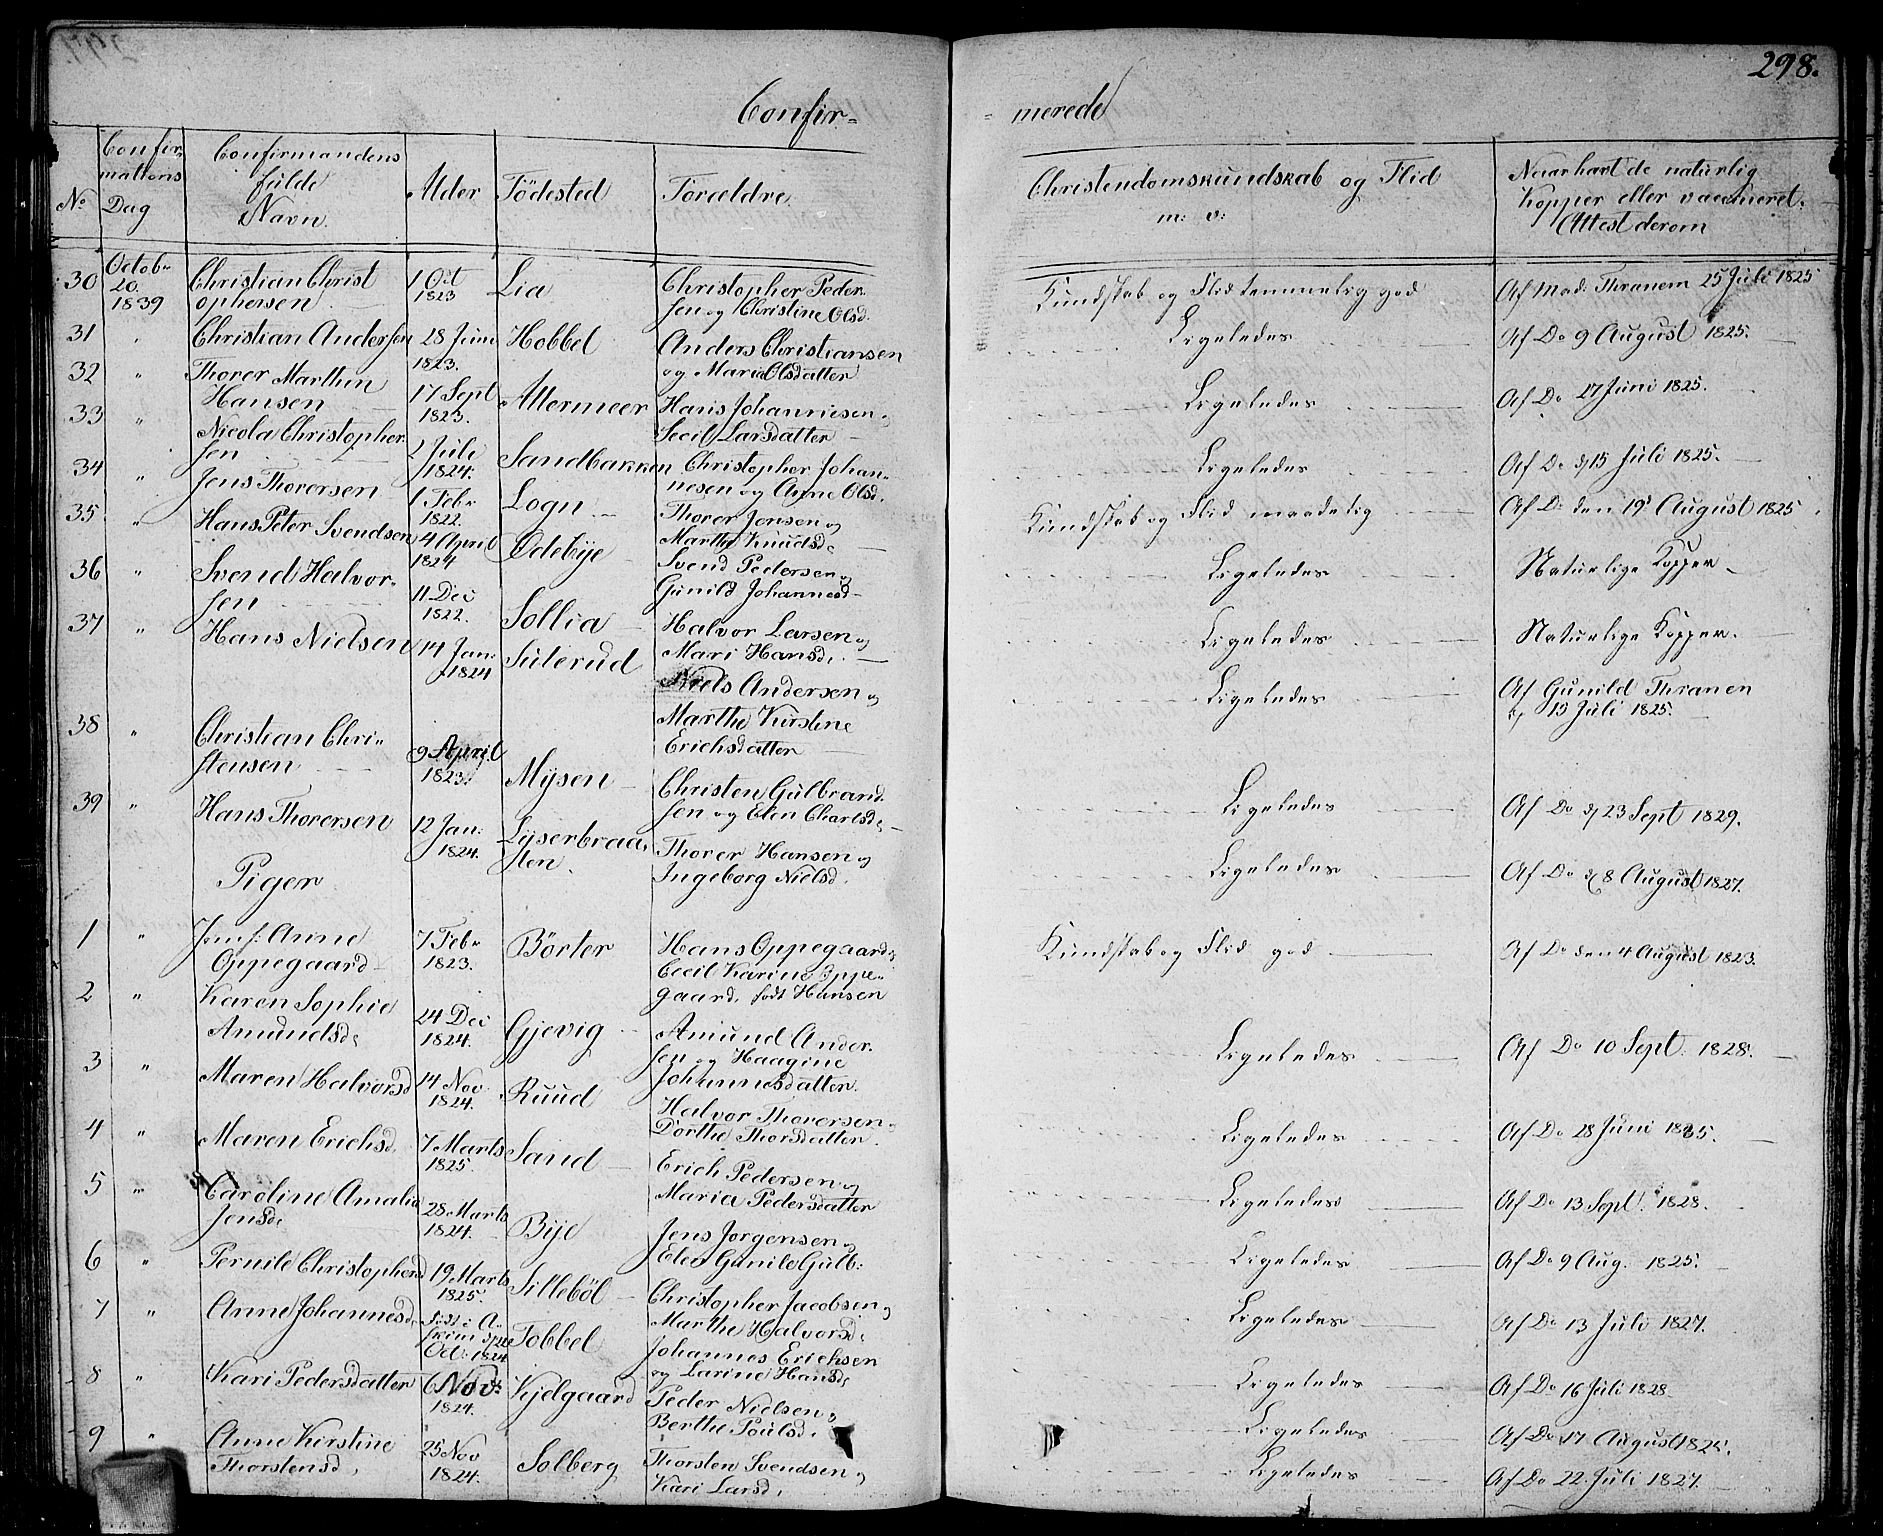 298.
Confir=
= merede
No
Confir,
mations
Dag
Confirmandens
fulde
Navn
Alder
Födested
Forældre
Christendomskundskab og Flid
m: v:
Naar hart de naturlig
Kopper eller vaccineret.
Attest derom
30 Octobr
20.
1839
Christian Christ
ophersen
1 Oct
1823
Lia
Christopher Peder
sen og Christine Olsd.
Kundskab og Flid temmelig god
Af Mad: Thranem 25 Juli 1825
31 "
Christian Andersen
28 Juni
1823.
Hobbel
Anders Christiansen
og Maria Olsdatter
Ligeledes
Af Do 9 August 1825.
32 "
Thorer Marthin
Hansen
17 Sept
1823.
Attermeer
Hans Johannesen
Secil Larsdatter
Ligeledes
Af Do 17 Juni 1825.
33 "
Nicola Christopher
sen
2 Juli
1824.
Sandbakken
Christopher Johan
nesen og Anne Olsd.
Ligeledes
Af Do d 15 Juli 1825.
34 "
Jens Thorersen
1 Febr
1822.
Logn
Thorer Jensen og
Marthe Knudsd.
Kundskab og Flid maadelig
Af Do den 19 August 1825
35 "
Hans Peter Svendsen
4 April
1824
Ödebye
Svend Pedersen og
Gunild Johannesd
Ligeledes
Naturlige Kopper
36 "
Svend Halvor
sen
11 Dec
1822.
Sollia
Halvor Larsen og
Mari Hansd.
Ligeledes
Naturlige Kopper.
37 "
Hans Nielsen
14 Jan:
1824
Sulerud
Niels Andersen og
Marthe Kirstine
Erichsdatter
Ligeledes
Af Gunild Thranen
d 15 Juli 1825.
38 "
Christian Chri=
stensen
9 April
1823.
Mysen
Christen Gulbrand
sen og Elen Charlsd.
Ligeledes
Af Do d 23 Sept 1829.
39 "
Hans Thorersen
12 Jan:
1824.
Lyserbraa,
ten.
Thorer Hansen og
Ingeborg Nielsd.
Ligeledes
Af Do d 8 August 1827.
Piger
1 "
Jomf: Anne
Oppegaard
7 Febr
1823.
Börter
Hans Oppegaard
Cecil Karine Oppe=
gaard, født Hansen
Kundskab og Flid god
Af Do den 4 August 1823.
2 "
Karen Sophie
Amundsd.
24 Dec
1824.
Gjevig
Amund Ander
sen og Haagine
Johannesdatter.
Ligeledes
Af Do 10 Sept: 1828.
3 "
Maren Halvorsd
14 Nov
1824.
Ruud
Halvor Thorersen
Dorthe Thorsdatter.
Ligeledes
Af Do 28 Juni 1835.
4 "
Maren Erichsd.
7 Marts
1825.
Sand
Erich Pedersen og
Maria Pedersdatter
Ligeledes
Af Do 13 Sept. 1828.
5 "
Caroline Amalia
Jensd.
28 Marts
1824.
Bye
Jens Jorgensen og
Elen Gunile Gulb:
Ligeledes
Af Do 9 Aug. 1825.
6 "
Pernile Christophersd
19 Marts
1825.
Sillebøl
Christopher Jacobsen og
Marthe Halvorsd.
Ligeledes
Af Do 13 Juli 1827.
7 "
Anne Johannesd.
født i A
Oct: 1824
Tobbel
Johannes Erichsen
og Larine Hansd.
Ligeledes
Af Do 16 Juli 1828
8 "
Kari Pedersdatter
6 Nov.
1824.
Kjelgaard
Peder Nielsen og
Berthe Poulsd.
Ligeledes
Af Do 17 August 1825.
9 "
Anne Kirstine
Thorstensd.
25 Nov
1824.
Solberg
Thorsten Svendsen og
Kari Larsd.
Ligeledes
Af Do 22. Juli 1827.